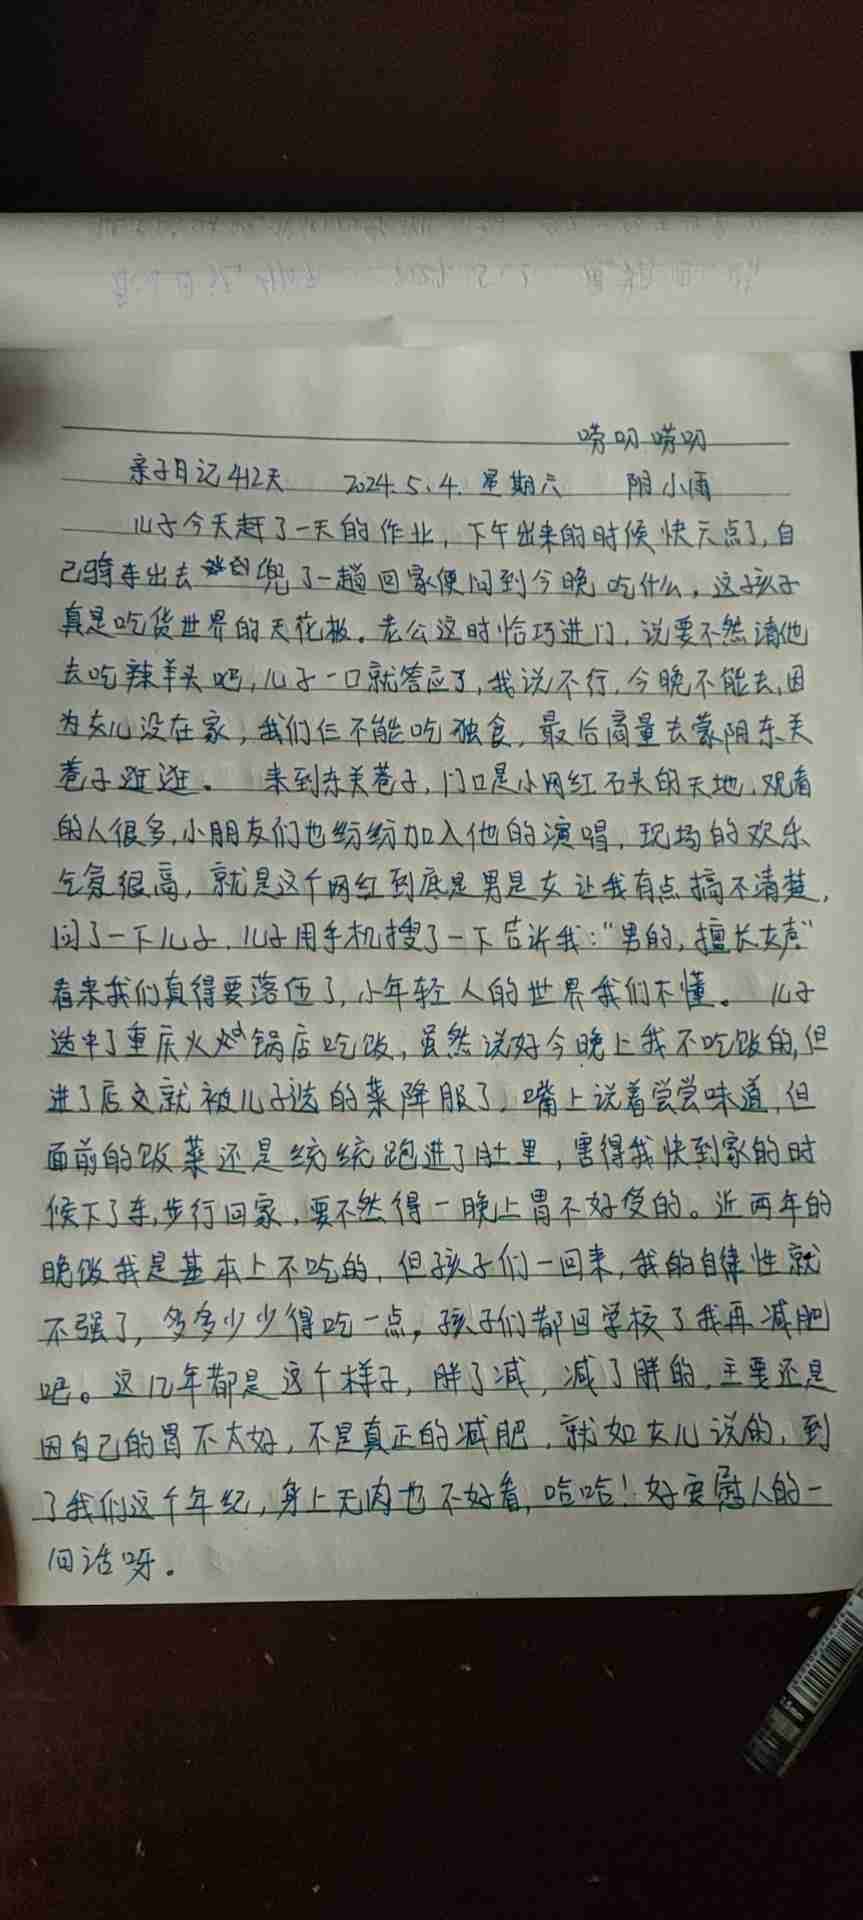 唠叨唠叨
亲子日记412天 2024.5.4. 星期六 阴小雨
儿子今天赶了一天的作业，下午出来的时候快六点了，自
己骑车出去兜了一趟回家便问到今晚吃什么，这孩子
真是吃货世界的天花板。老公这时恰巧进门，说要不然请他
去吃辣羊头吧，儿子一口就答应了，我说不行，今晚不能去，因
为女儿没在家，我们仨不能吃独食，最后商量去蒙阴东关
巷子逛逛。 来到东关巷子，门口是小网红石头的天地，观看
的人很多，小朋友们也纷纷加入他的演唱，现场的欢乐
气氛很高，就是这个网红到底是男是女让我有点搞不清楚，
问了一下儿子，儿子用手机搜了一下告诉我：“男的，擅长女声”
看来我们真得要落伍了，小年轻人的世界我们不懂。 儿子
选中了重庆火锅店吃饭，虽然说好今晚上我不吃饭的，但
进了店又就被儿子选的菜降服了，嘴上说着尝尝味道，但
面前的饭菜还是统统跑进了肚里，害得我快到家的时
候下了车，步行回家，要不然得一晚上胃不好受的。近两年的
晚饭我是基本上不吃的，但孩子们一回来，我的自律性就
不强了，多多少少得吃一点，孩子们都回学校了我再减肥
吧。这几年都是这个样子，胖了减，减了胖的，主要还是
因自己的胃不太好，不是真正的减肥，就如女儿说的，到
了我们这个年纪，身上无肉也不好看，哈哈！好安慰人的一
句话呀。